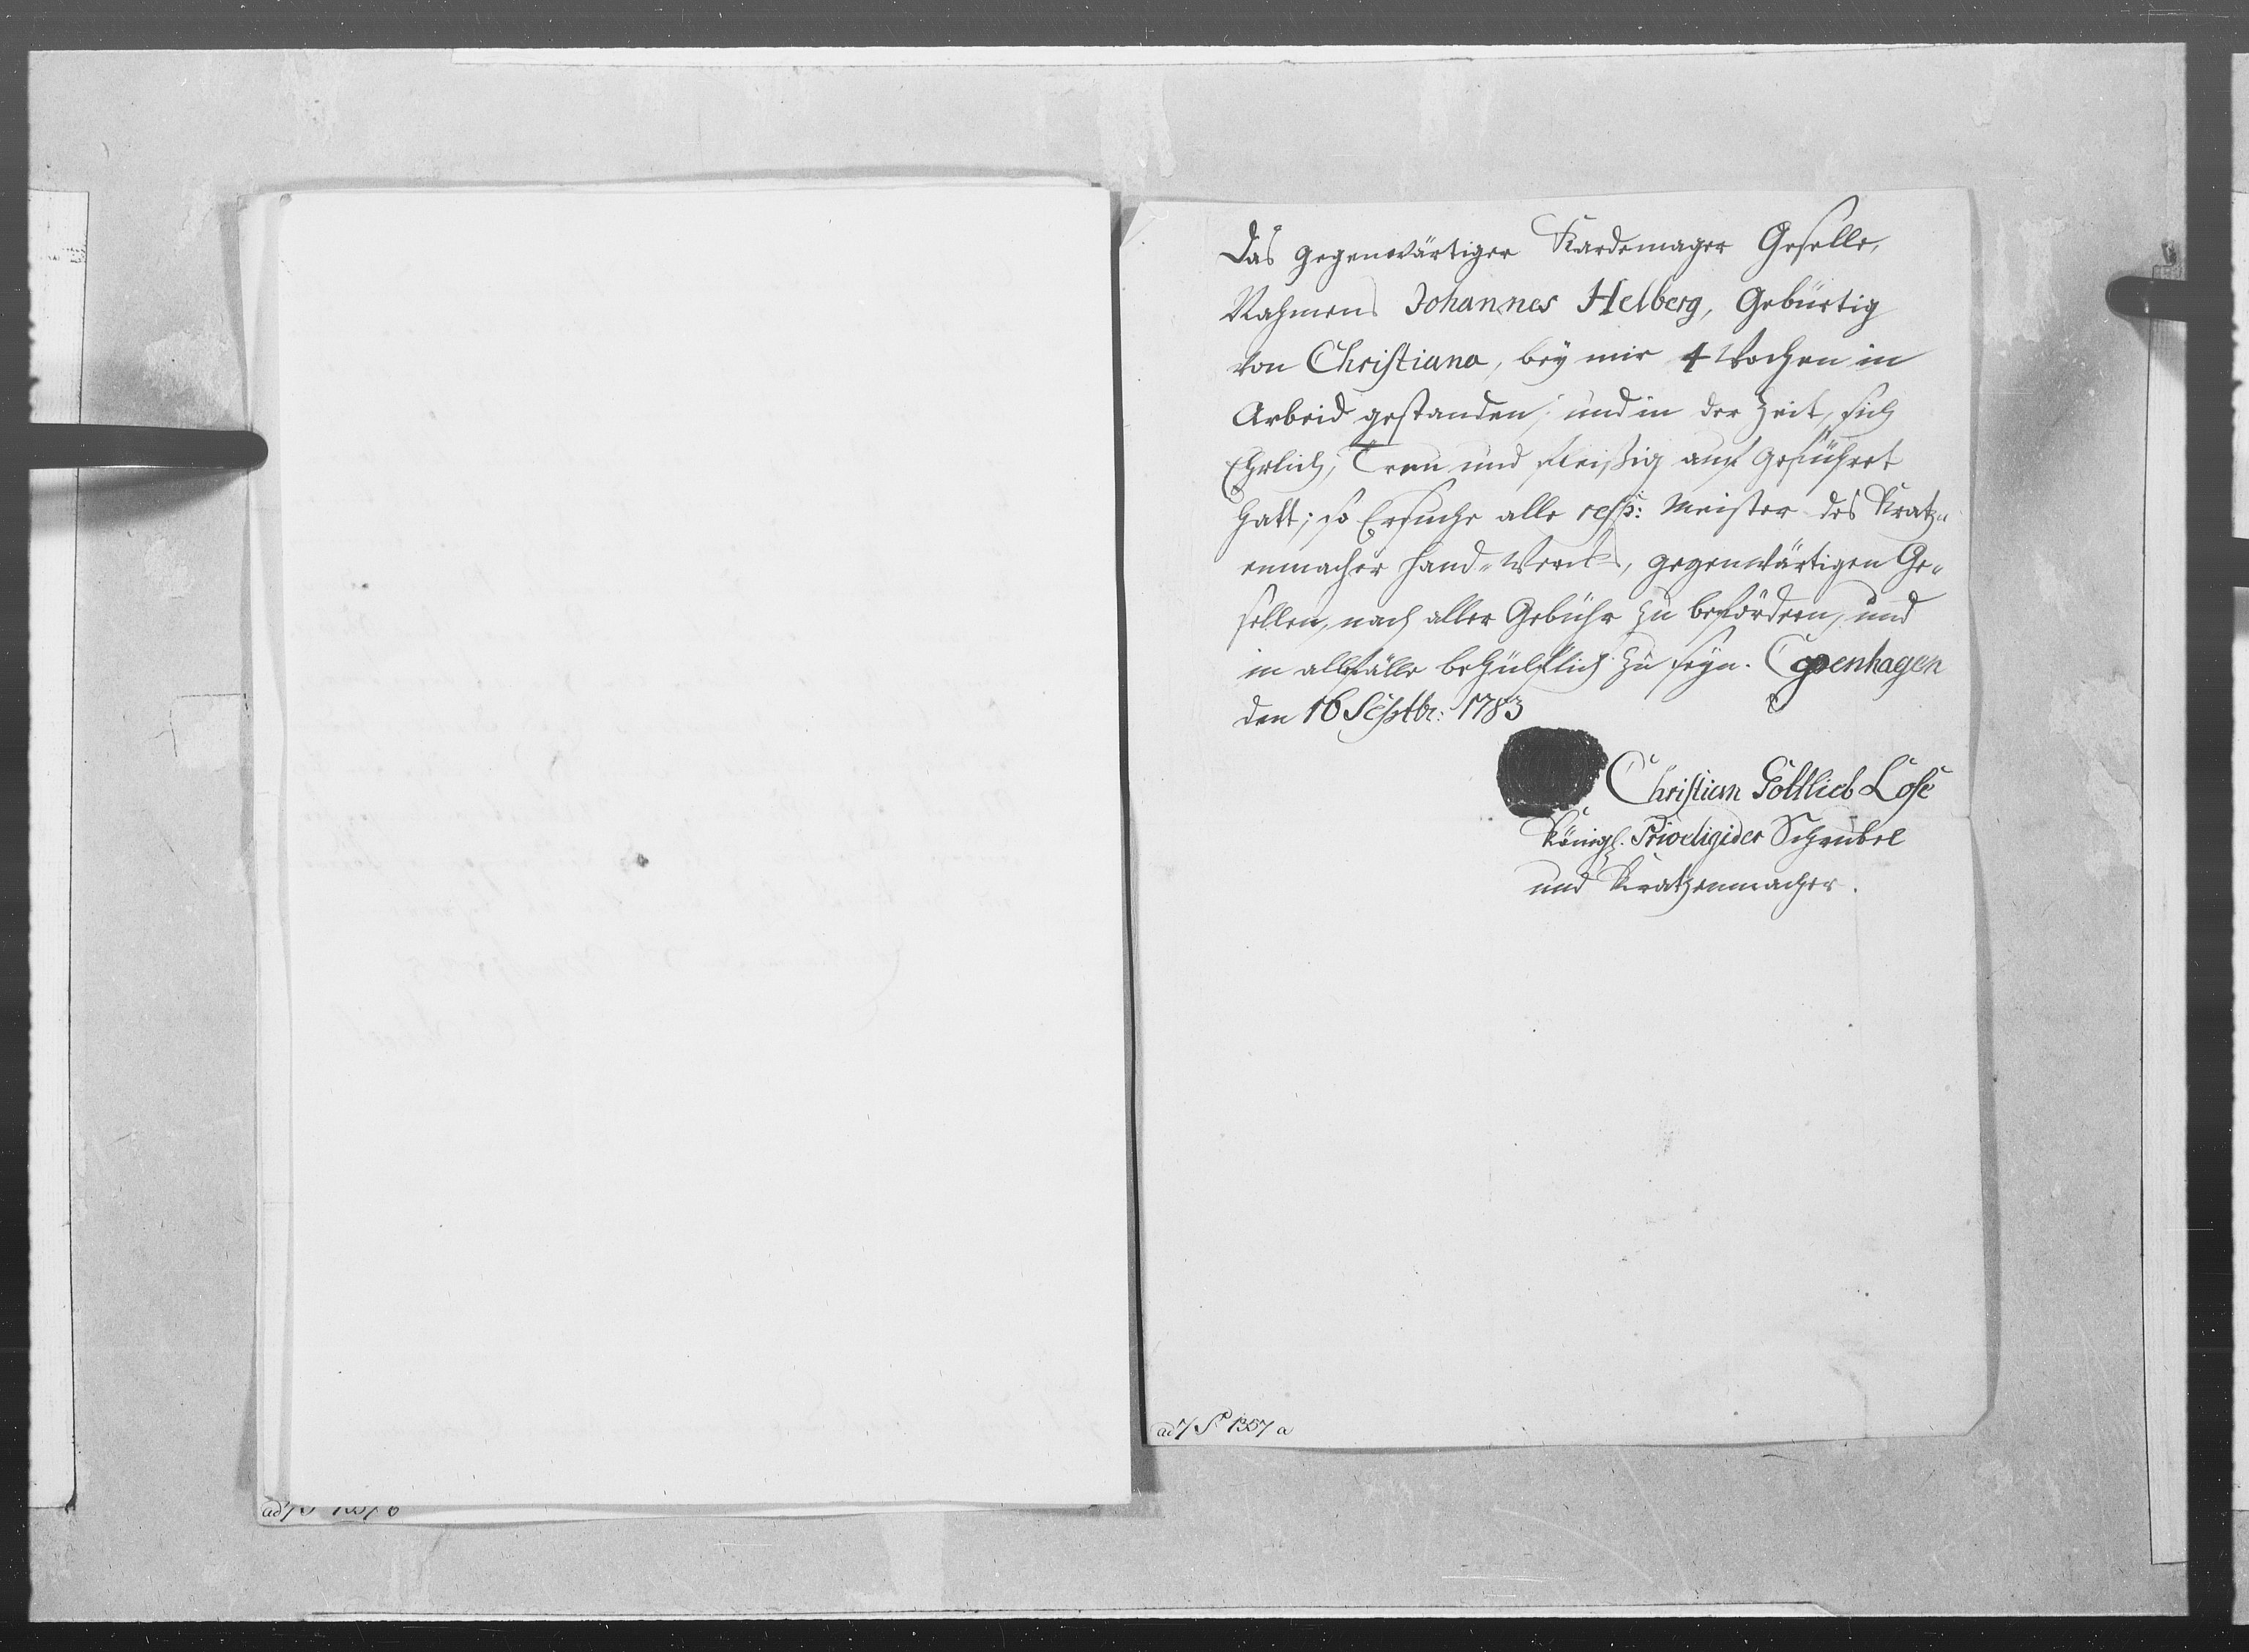 Das gegenwärtiger Kardemager Geselle,
Nahmens Johannes Helberg, Gebürtig
von Christiana, bey mir 4 Wochen in
Arbeid gestanden, und in der Zeit, sich
Ehrlich, Treu und fleißig auf geführet
hatt; so Ersuche alle resp: Meister des Kratz-
enmacher Hand-Werck's, gegenwärtigen Ge-
sellen, nach aller Gebühr zu befördern, und
in allefälle behülflich zu seyn. Copenhagen
den 16 Septbr: 1783
Christian Gottlieb Lose
Königl. Priveligider Schrubel
und Kratzenmacher.
ad 7 S 1357 a
ad 7 S 1357 b